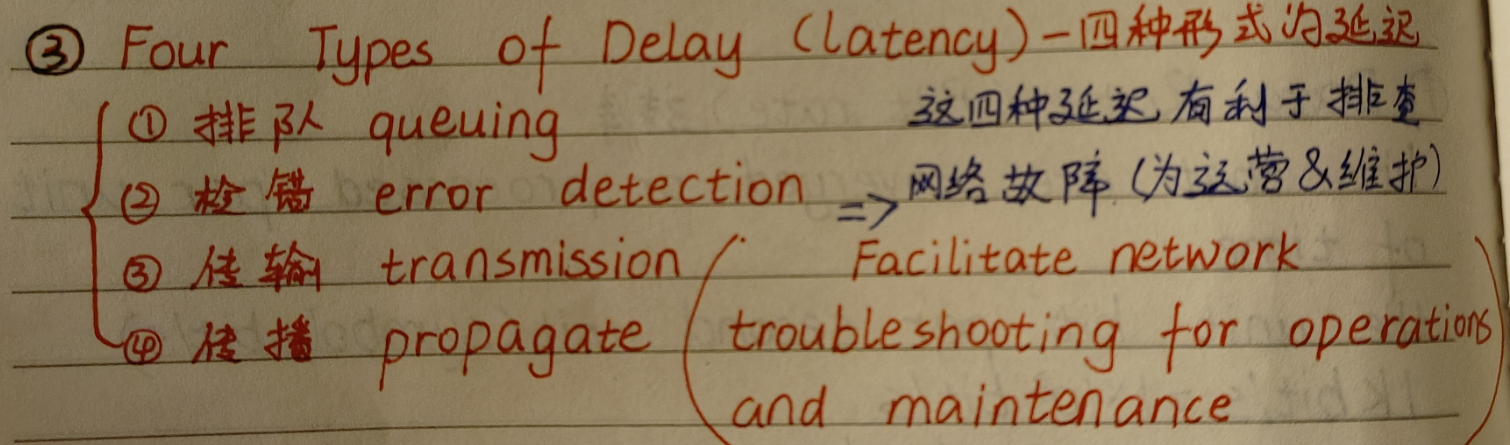 ③ Four Types of Delay (latency) - 四种形式的延迟
① 排队 queuing
② 检错 error detection
③ 传输 transmission
④ 传播 propagate
=> 这四种延迟有利于排查
网络故障 (为运营&维护)
( Facilitate network
troubleshooting for operations
and maintenance )